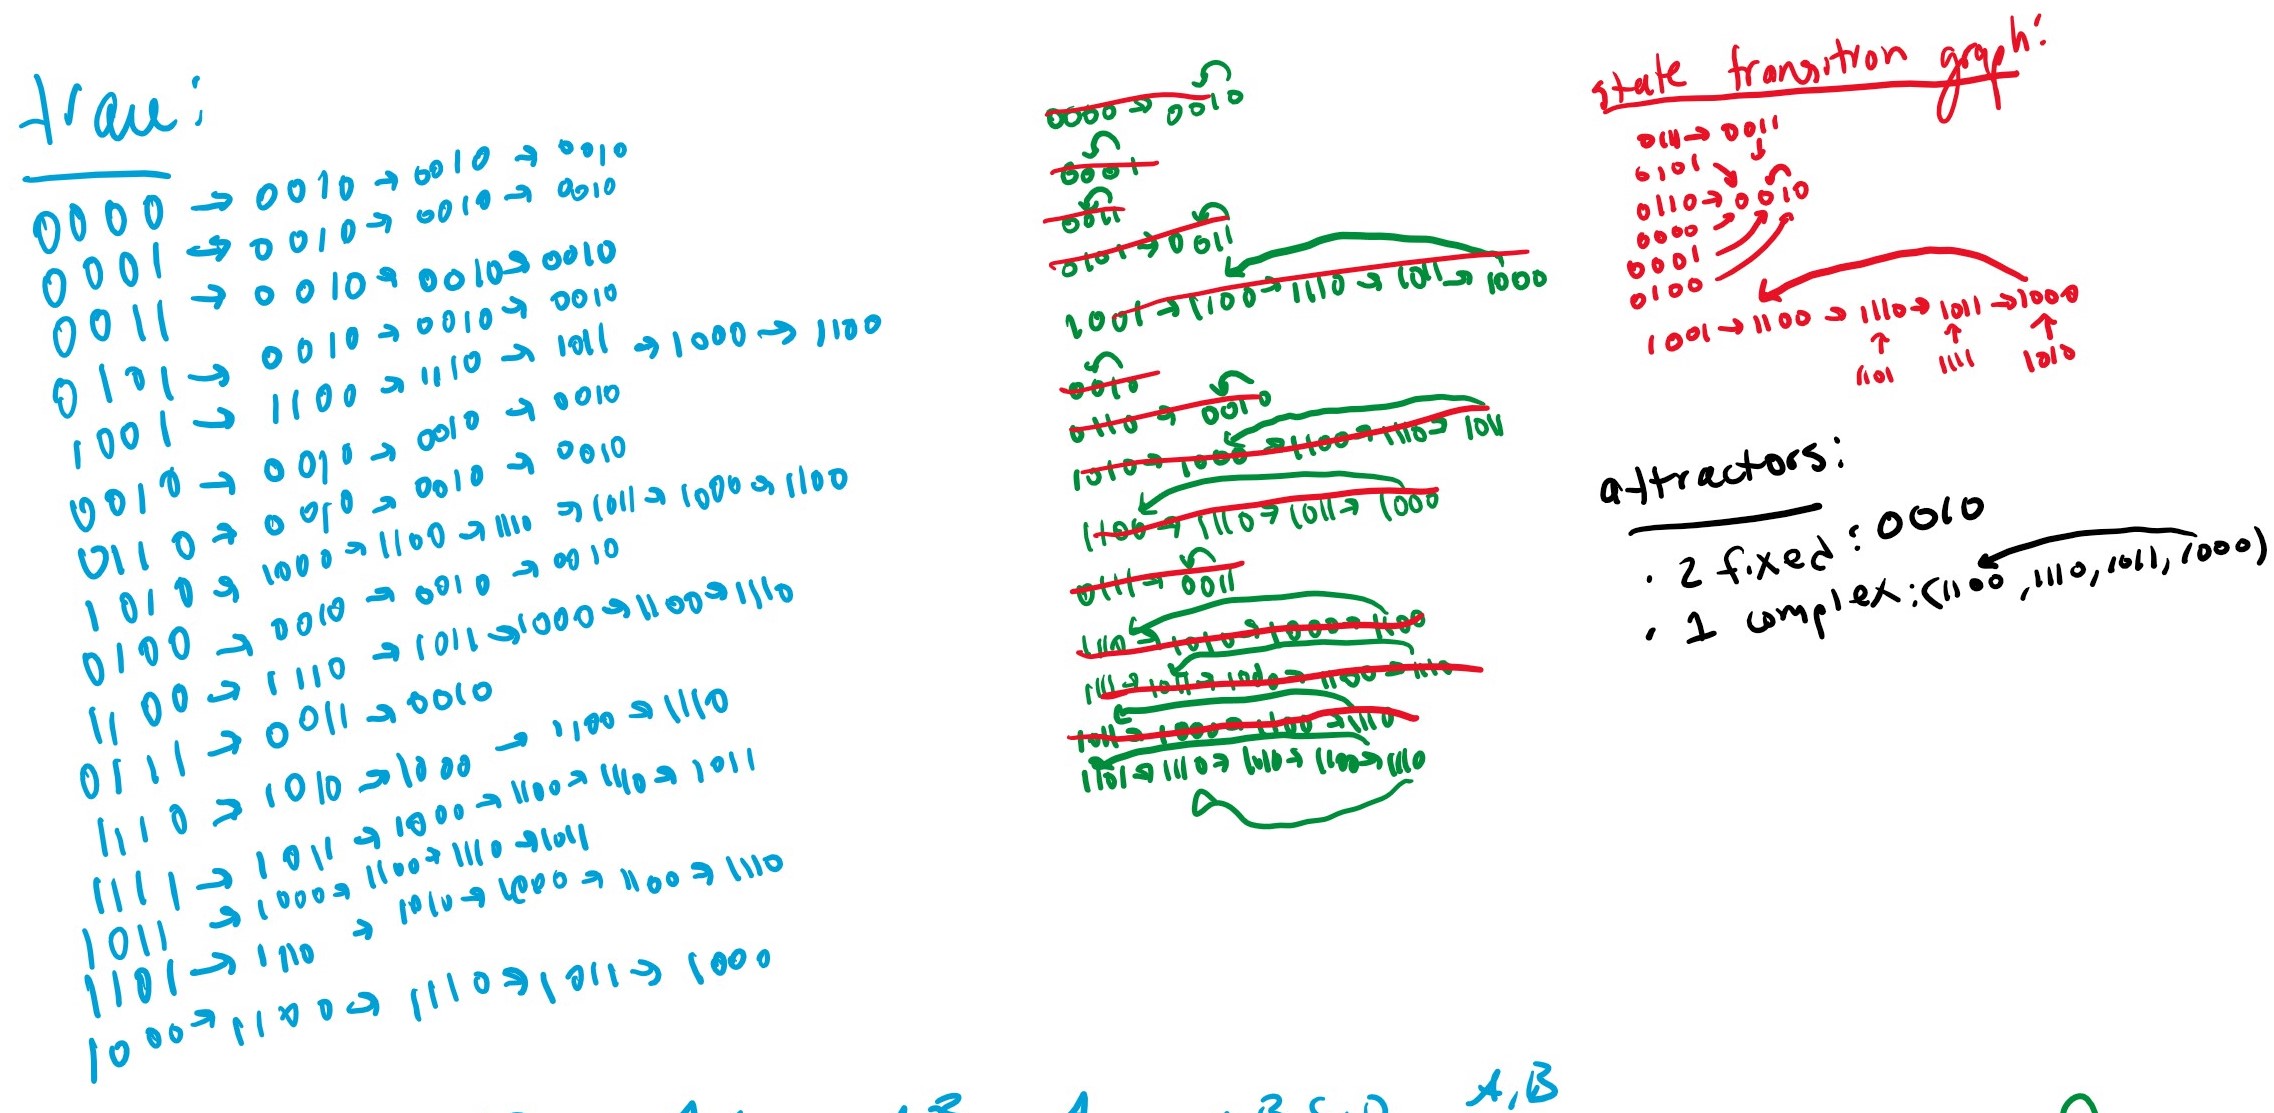 trace:
0000 → 0010 → 0010 → 0010
0001 → 0010 → 0010 → 0010
0011 → 0010 → 0010 → 0010
0101 → 0010 → 0010 → 0010
1001 → 1100 → 1110 → 1011 → 1000 → 1100
0010 → 0010 → 0010 → 0010
0110 → 0010 → 0010 → 0010
1010 → 1000 → 1100 → 1110 → 1011 → 1000 → 1100
0100 → 0010 → 0010 → 0010
1100 → 1110 → 1011 → 1000 → 1100 → 1110
0111 → 0011 → 0010
1110 → 1010 → 1000 → 1100 → 1110
1111 → 1011 → 1000 → 1100 → 1110 → 1011
1011 → 1000 → 1100 → 1110 → 1011
1101 → 1110 → 1010 → 1000 → 1100 → 1110
1000 → 1100 → 1110 → 1011 → 1000
0000 → 0010
0001
0011
0101 → 0011
1001 → 1100 → 1110 → 1011 → 1000
0010
0110 → 0010
1010 → 1000 → 1100 → 1110 → 1011
1100 → 1110 → 1011 → 1000
0111 → 0011
1110 → 1010 → 1000 → 1100
1111 → 1011 → 1000 → 1100 → 1110
1011 → 1000 → 1100 → 1110
1101 → 1110 → 1010 → 1100 → 1110
state transition graph:
0111 → 0011
0101
0110 → 0010
0000
0001
0100
1001 → 1100 → 1110 → 1011 → 1000
1101 1111 1010
attractors:
· 2 fixed: 0010
· 1 complex: (1100, 1110, 1011, 1000)
A,B